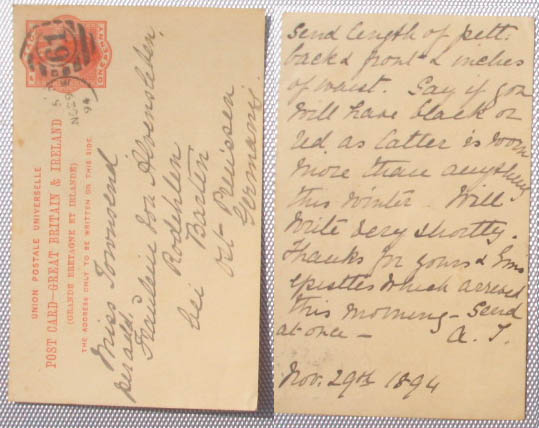 ONE PENNY
61
NO 29
94
UNION POSTALE UNIVERSELLE
POST CARD—GREAT BRITAIN & IRELAND
(GRANDE BRETAGNE ET IRLANDE)
THE ADDRESS ONLY TO BE WRITTEN ON THIS SIDE.
Miss Townsend
per add.
Fraulein von Alvensleben,
Rodehlen
bei Barten
Ost Preussen
Germany.
Send length of pett:
back & front & inches
of waist. Say if you
will have black or
red as latter is worn
more than anything
this winter – Will
write very shortly.
Thanks for yours & Ems
epistles which arrived
this morning – Send
at once – A. T.
Nov. 29th 1894